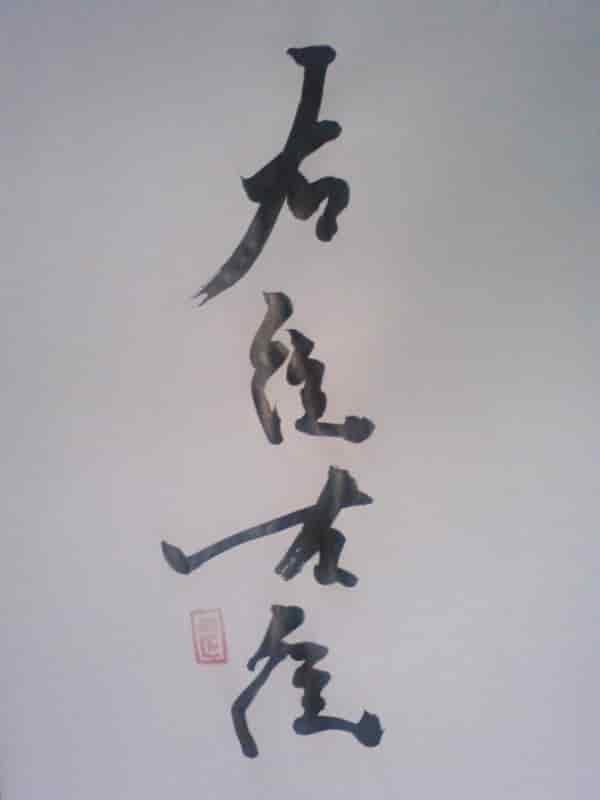 右往左往